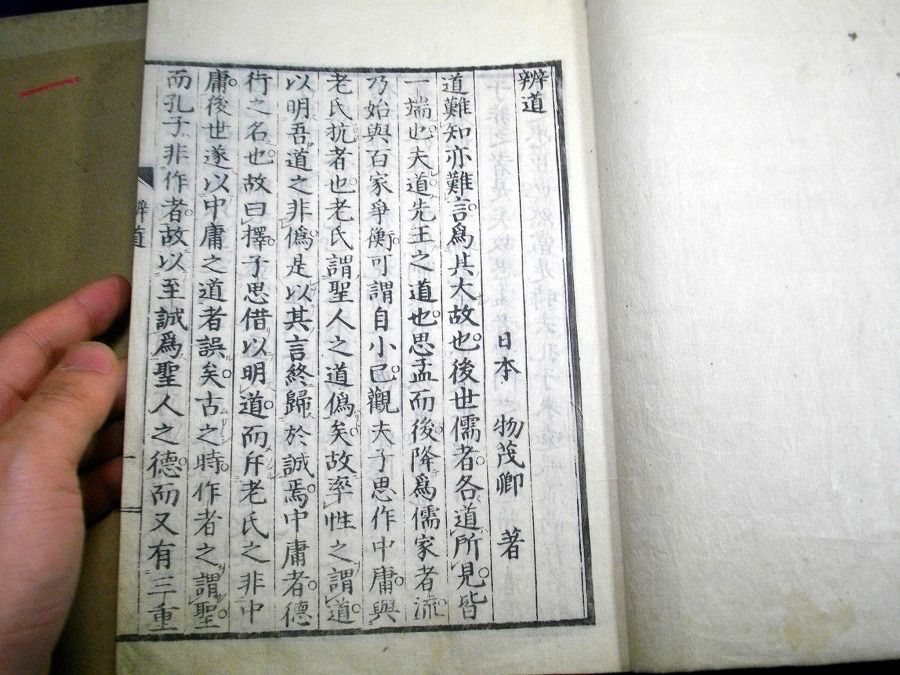 辨道
日本 物茂卿 著
道難知亦難言爲其大故也。後世儒者。各道所見。皆
一端也。夫道。先王之道也。思孟而後。降爲儒家者流。
乃始與百家爭衡。可謂自小已。觀夫子思作中庸。與
老氏抗者也。老氏謂聖人之道僞矣。故率性之謂道。
以明吾道之非僞。是以其言終歸於誠焉。中庸者。德
行之名也。故曰擇。子思借以明道。而斥老氏之非中
庸。後世遂以中庸之道者誤矣。古之時。作者之謂聖。
而孔子非作者。故以至誠爲聖人之德。而又有三重
辨道
一